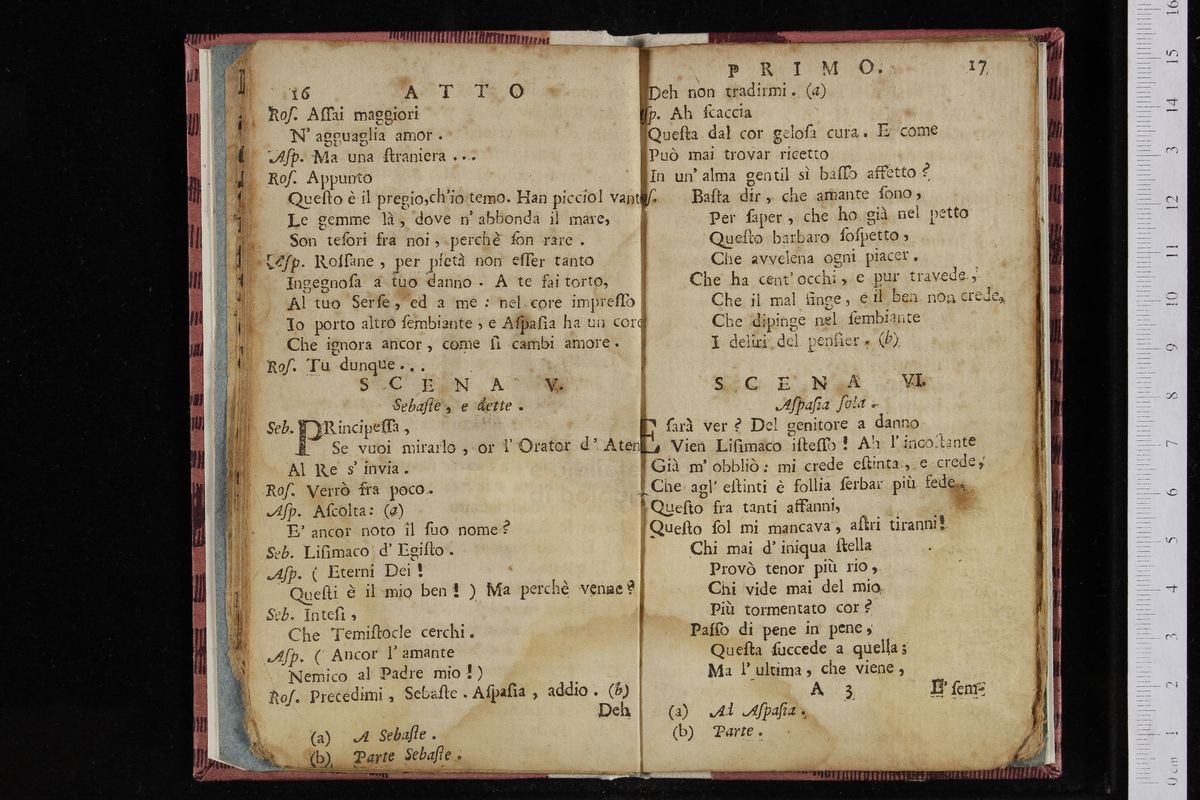 16 ATTO
Roſ. Aſſai maggiori
N' agguaglia amor.
Aſp. Ma una ſtraniera ...
Roſ. Appunto
Queſto è il pregio, ch'io temo. Han picciol vant
Le gemme là, dove n' abbonda il mare,
Son teſori fra noi, perchè ſon rare.
Aſp. Roſſane, per pietà non eſſer tanto
Ingegnoſa a tuo danno. A te fai torto,
Al tuo Serſe, ed a me: nel core impreſſo
Io porto altro ſembiante, e Aſpaſia ha un core
Che ignora ancor, come ſi cambi amore.
Roſ. Tu dunque...
SCENA V.
Sebaſte, e dette.
Seb. PRincipeſſa,
Se vuoi mirarlo, or l' Orator d' Aten
Al Re s' invia.
Roſ. Verrò fra poco.
Aſp. Aſcolta: (a)
E' ancor noto il ſuo nome?
Seb. Liſimaco d' Egiſto.
Aſp. (Eterni Dei!
Queſti è il mio ben!) Ma perchè venne?
Seb. Inteſi,
Che Temiſtocle cerchi.
Aſp. (Ancor l' amante
Nemico al Padre mio!)
Roſ. Precedimi, Sebaſte. Aſpaſia, addio. (b)
Deh
(a) A Sebaſte.
(b) Parte Sebaſte.
PRIMO. 17
Deh non tradirmi. (a)
ſp. Ah ſcaccia
Queſta dal cor geloſa cura. E come
Può mai trovar ricetto
In un' alma gentil sì baſſo affetto?
oſ. Baſta dir, che amante ſono,
Per ſaper, che ho già nel petto
Queſto barbaro ſoſpetto,
Che avvelena ogni piacer.
Che ha cent' occhi, e pur travede,
Che il mal finge, e il ben non crede,
Che dipinge nel ſembiante
I deliri del penſier. (b)
SCENA VI.
Aſpaſia ſola.
E ſarà ver? Del genitore a danno
Vien Liſimaco iſteſſo! Ah l' incoſtante
Già m' obbliò: mi crede eſtinta, e crede,
Che agl' eſtinti è follia ſerbar più fede.
Queſto fra tanti affanni,
Queſto ſol mi mancava, aſtri tiranni!
Chi mai d' iniqua ſtella
Provò tenor più rio,
Chi vide mai del mio
Più tormentato cor?
Paſſo di pene in pene,
Queſta ſuccede a quella;
Ma l' ultima, che viene,
A 3 E' ſem-
(a) Ad Aſpaſia.
(b) Parte.